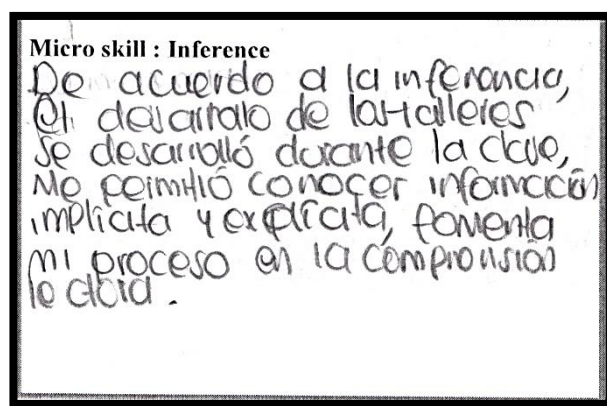 Micro skill : Inference
De acuerdo a la inferencia,
el desarrollo de los talleres
se desarrolló durante la clase,
Me permitió conocer información
implicita y explícita, fomenta
mi proceso en la comprensión
lectora.